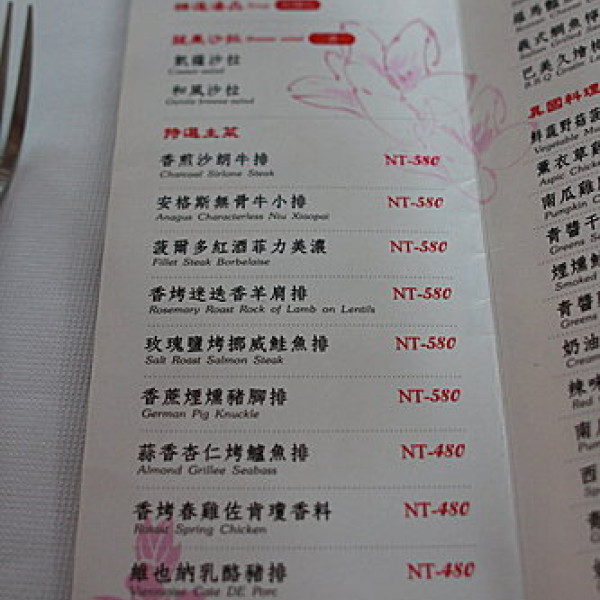 凱薩沙拉
Caesar salad
和風沙拉
特選主菜
香煎沙朗牛排 NT-580
Charcoal Sirlone Steak
安格斯無骨牛小排 NT-580
Anagus Characterless Niu Xiaopai
菠爾多紅酒菲力美濃 NT-580
Fillet Steak Borbelaise
香烤迷迭香羊肩排 NT-580
Rosemary Roast Rock of Lamb on Lentils
玫瑰鹽烤挪威鮭魚排 NT-580
Salt Roast Salmon Steak
香蔗煙燻豬腳排 NT-580
German Pig Knuckle
蒜香杏仁烤鱸魚排 NT-480
Almond Grillee Seabass
香烤春雞佐肯瓊香料 NT-480
Roasic Spring Chicken
維也納乳酪豬排 NT-480
Viennoise Cate DE Porc
異國料理
鮮蔬野菇
Vegetable Mu
薰衣草雞
Aspic Chicke
南瓜雞
Pumpkin C
青醬干
Greens S
煙燻鮭
Smoked
青醬
Greens
奶油
Cream
辣味
Red
南瓜
Pum
西